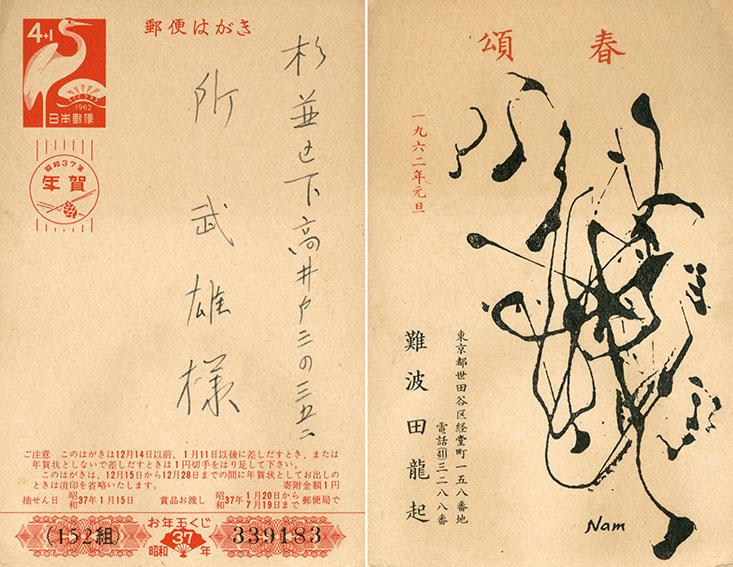 郵便はがき
4+1
1962
日本郵便
昭和37年
年賀
杉並区下高井戸三の三五二
所武雄様
ご注意 このはがきは12月14日以前、1月11日以後に差しだすとき、または
年賀状としないで差しだすときは1円切手をはり足して下さい。
このはがきは、12月15日から12月28日までの間に年賀状としてお出しの
ときは消印を省略いたします。 寄附金額1円
抽せん日 昭和37年1月15日 賞品お渡し 昭和37年1月20日から7月19日まで郵便局で
お年玉くじ
(152組) 昭和37年 339183
頌春
一九六二年元旦
東京都世田谷区経堂町一五八番地
電話(411)三二八八番
難波田龍起
Nam